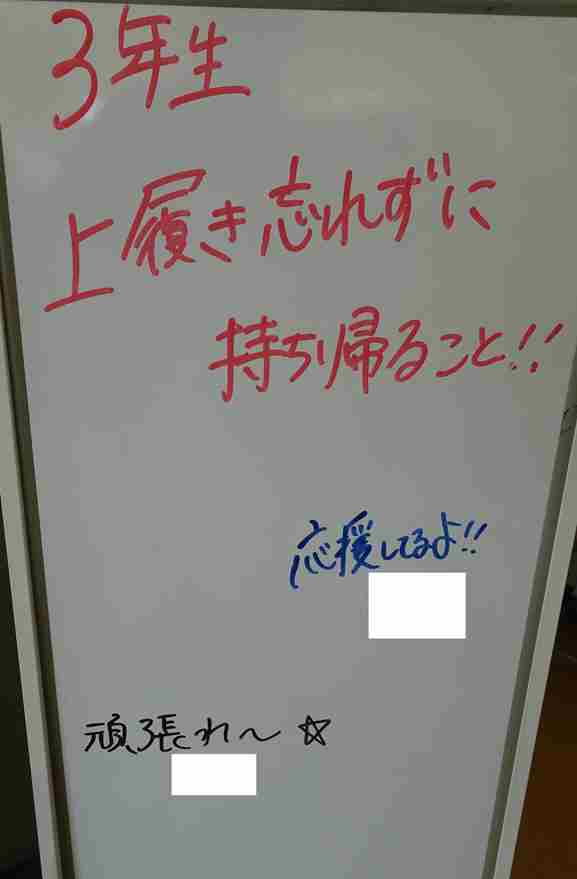 3年生
上履き忘れずに
持ち帰ること!!
応援してるよ!!
頑張れ〜☆